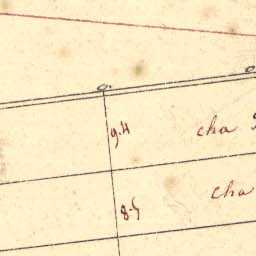 9.4 cha
8.5 cha